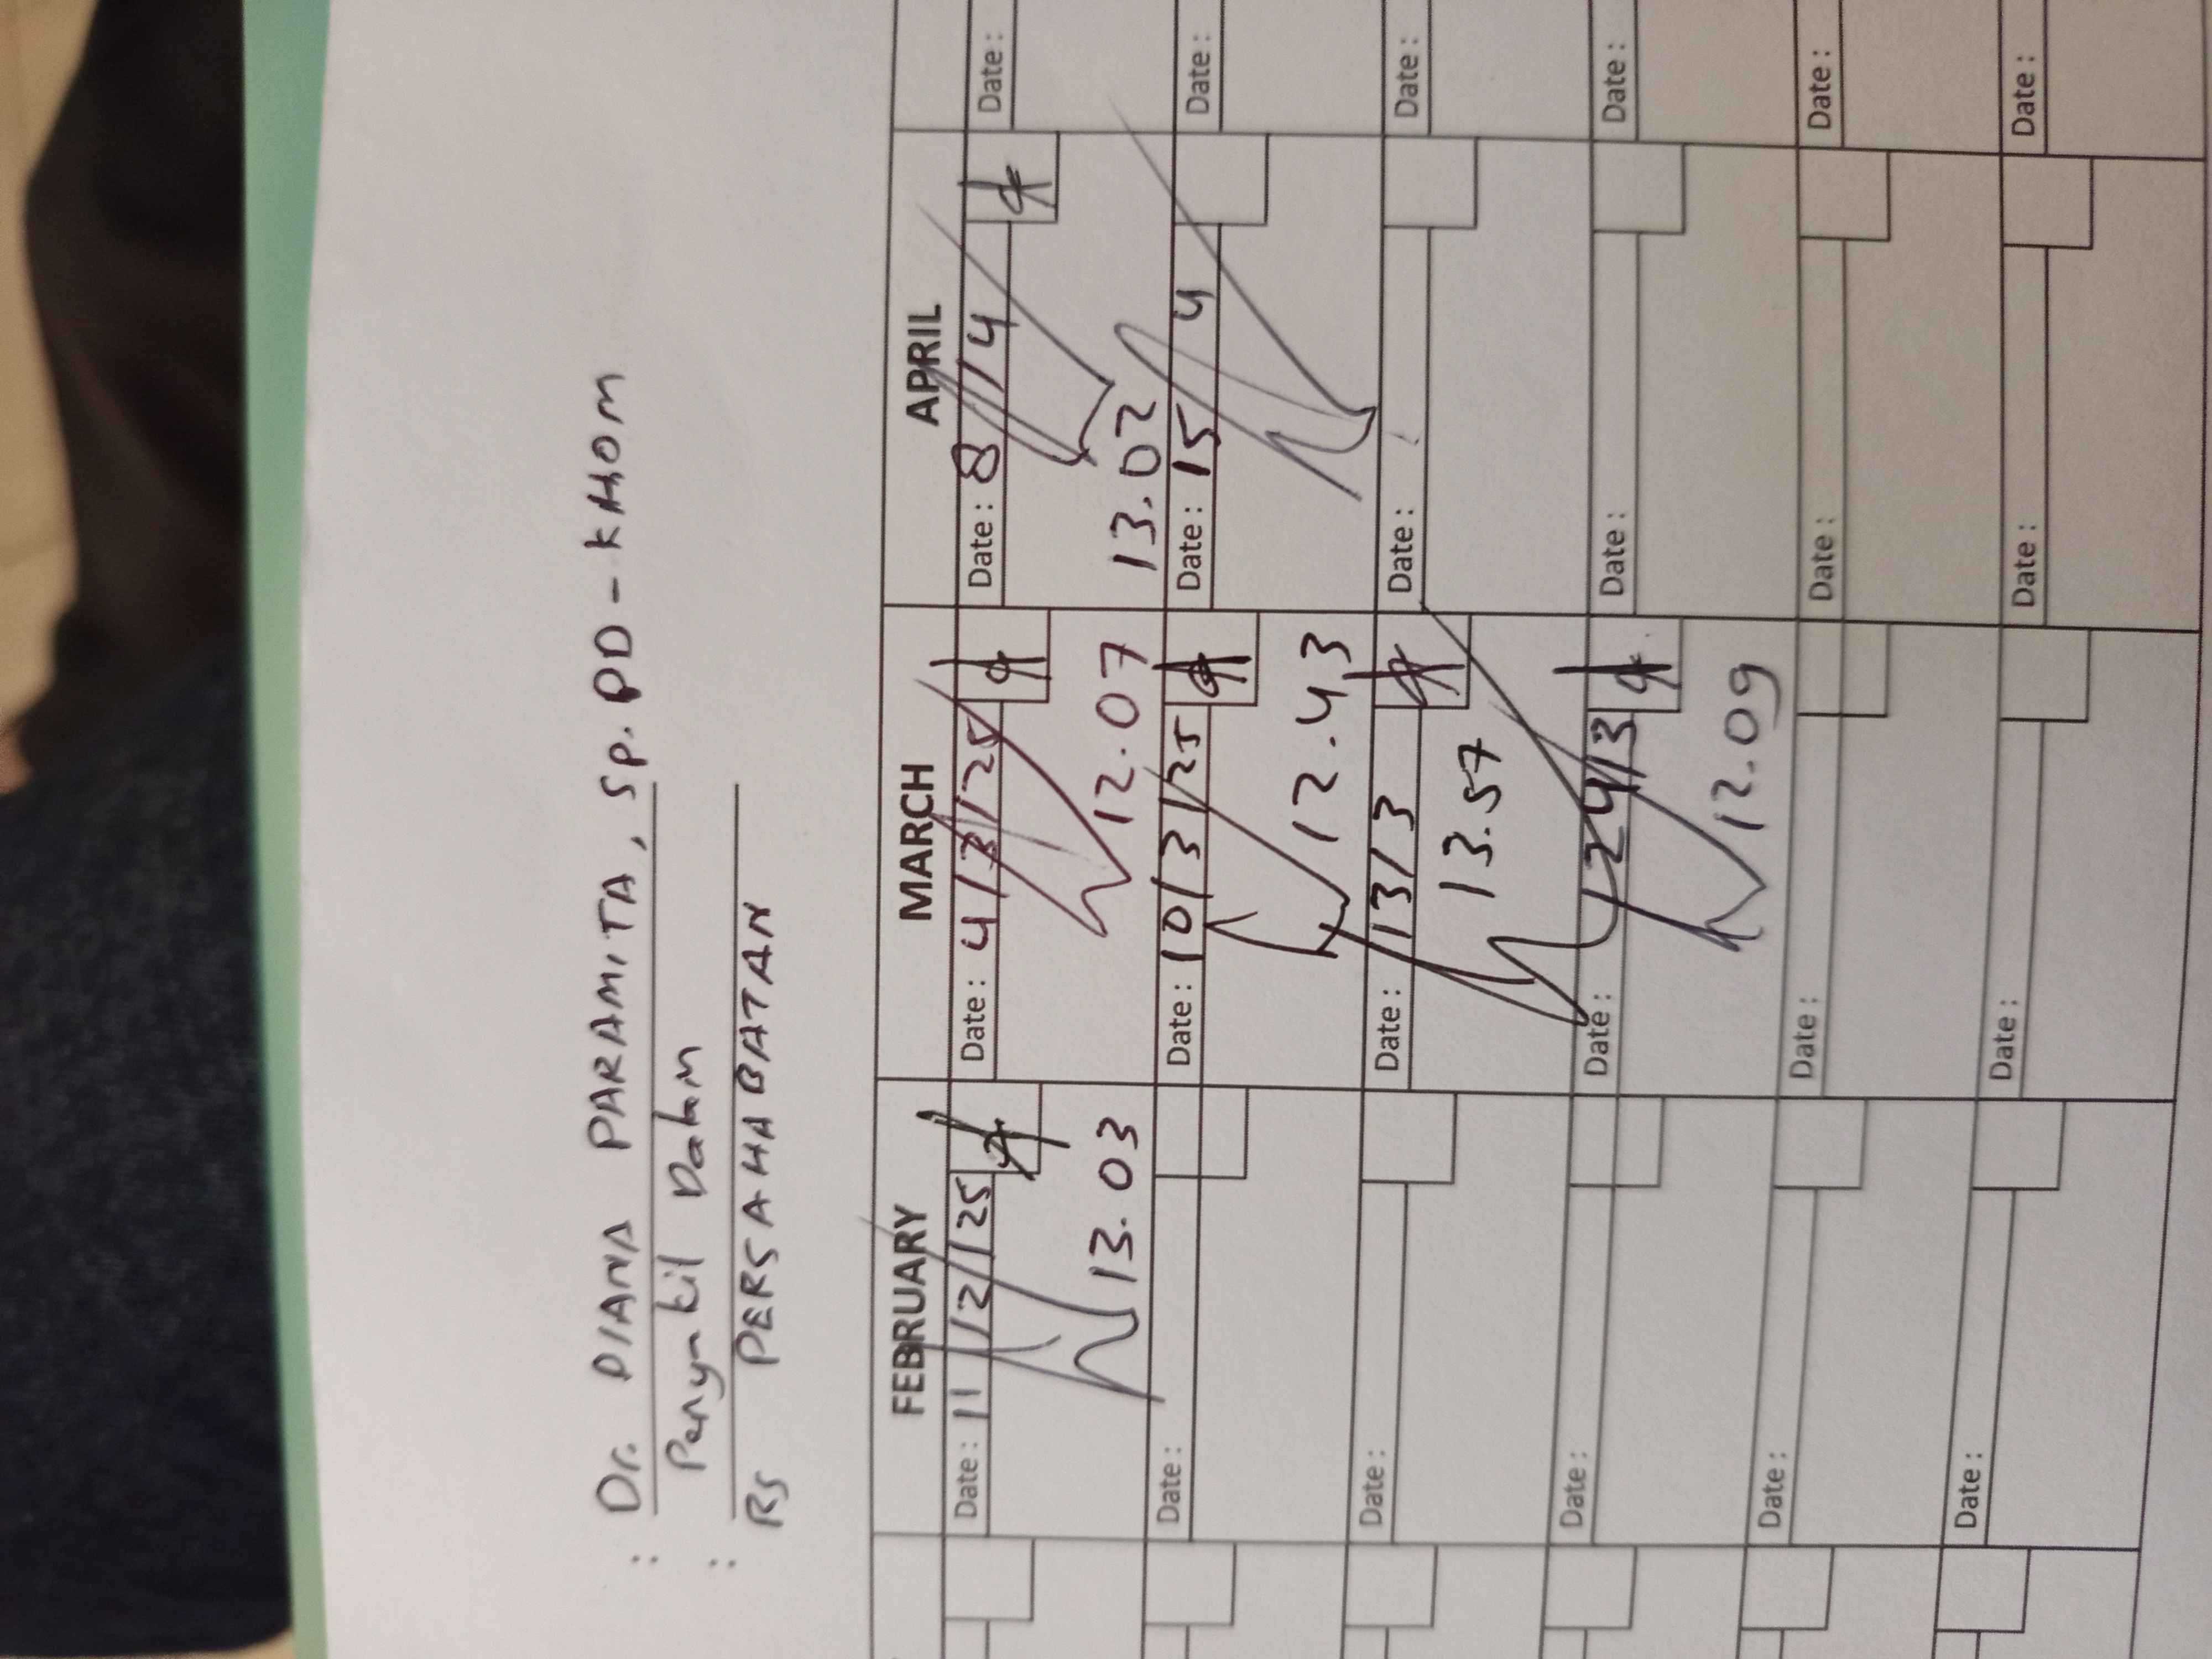 : Dr. DIANA PARAMITA, Sp.PD-KHOM
: Penyakit Dalam
RS PERSAHABATAN
FEBRUARY MARCH APRIL
Date : 11/2/25 Date : 4/3/25 Date : 8/4 Date :
13.03 12.07 13.02
Date : Date : 10/3/25 Date : 15 4 Date :
12.43
Date : Date : 13/3 Date : Date :
13.57
Date : Date : 24/3 Date : Date :
12.09
Date : Date : Date : Date :
Date : Date : Date : Date :